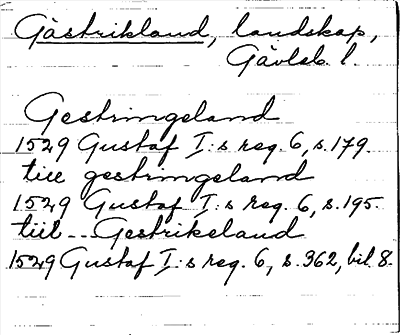 Gästrikland, landskap,
Gävleb. l.
Gestringeland
1529 Gustaf I:s reg. 6, s. 179.
till gestringeland
1529 Gustaf I:s reg. 6, s. 195.
till -- Gestrikeland
1529 Gustaf I:s reg. 6, s. 362, bil. 8.